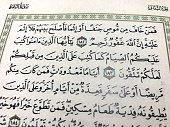 فَمَنْ خَافَ مِن مُّوصٍ جَنَفًا أَوْ إِثْمًا فَأَصْلَحَ بَيْنَهُمْ فَلَآ إِثْمَ
عَلَيْهِ إِنَّ ٱللَّهَ غَفُورٌ رَّحِيمٌ ١٨٢ يَٰٓأَيُّهَا ٱلَّذِينَ ءَامَنُوا۟ كُتِبَ
عَلَيْكُمُ ٱلصِّيَامُ كَمَا كُتِبَ عَلَى ٱلَّذِينَ مِن قَبْلِكُمْ
لَعَلَّكُمْ تَتَّقُونَ ١٨٣ أَيَّامًا مَّعْدُودَٰتٍ فَمَن كَانَ مِنكُم
مَّرِيضًا أَوْ عَلَىٰ سَفَرٍ فَعِدَّةٌ مِّنْ أَيَّامٍ أُخَرَ وَعَلَى ٱلَّذِينَ
يُطِيقُونَهُۥ فِدْيَةٌ طَعَامُ مِسْكِينٍ فَمَن تَطَوَّعَ خَيْرًا فَهُوَ